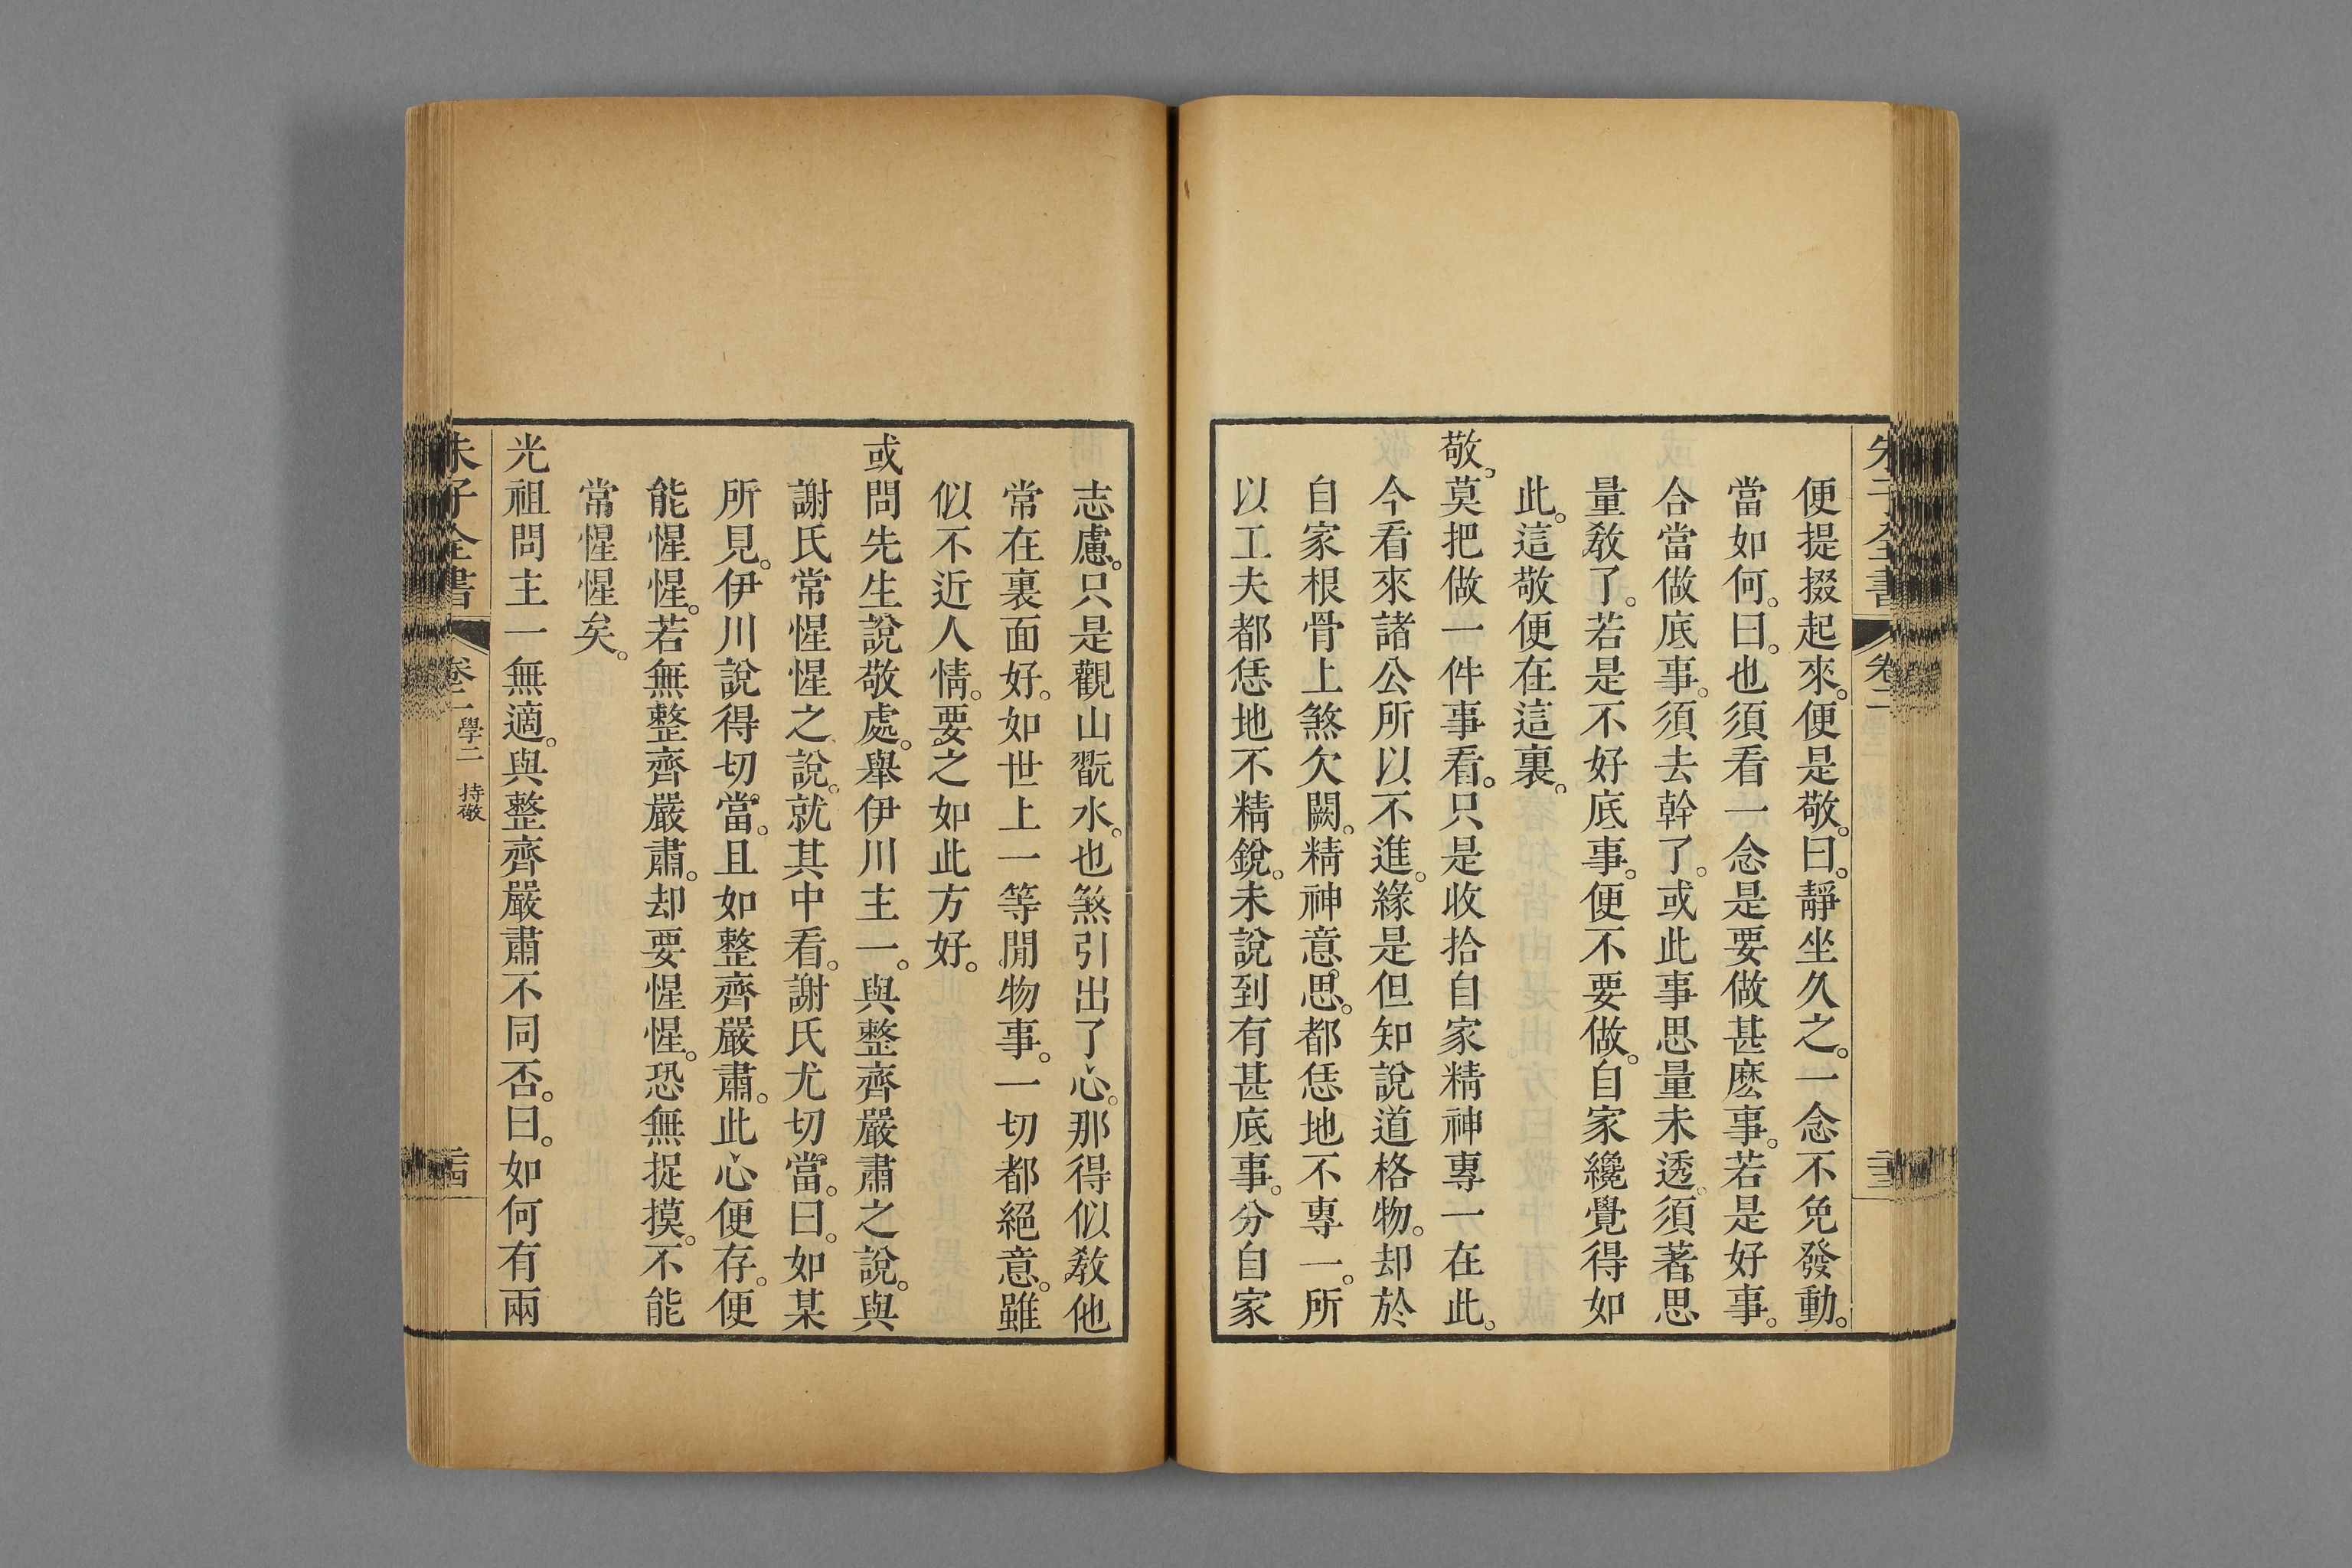 朱子全書 卷二
便提掇起來。便是敬。曰。靜坐久之。一念不免發動。
當如何。曰。也須看一念是要做甚麽事。若是好事。
合當做底事。須去幹了。或此事思量未透。須著思
量敎了。若是不好底事。便不要做。自家纔覺得如
此。這敬便在這裏。
敬。莫把做一件事看。只是收拾自家精神專一在此。
今看來諸公所以不進。緣是但知說道格物。却於
自家根骨上煞欠闕。精神意思。都恁地不專一。所
以工夫都恁地不精銳。未說到有甚底事。分自家
志慮。只是觀山翫水。也煞引出了心。那得似敎他
常在裏面好。如世上一等閒物事。一切都絕意。雖
似不近人情。要之如此方好。
或問先生說敬處。舉伊川主一。與整齊嚴肅之說。與
謝氏常惺惺之說。就其中看。謝氏尤切當。曰。如某
所見。伊川說得切當。且如整齊嚴肅。此心便存。便
能惺惺。若無整齊嚴肅。却要惺惺。恐無捉摸。不能
常惺惺矣。
光祖問主一無適。與整齊嚴肅不同否。曰。如何有兩
朱子全書 卷二 學二 持敬